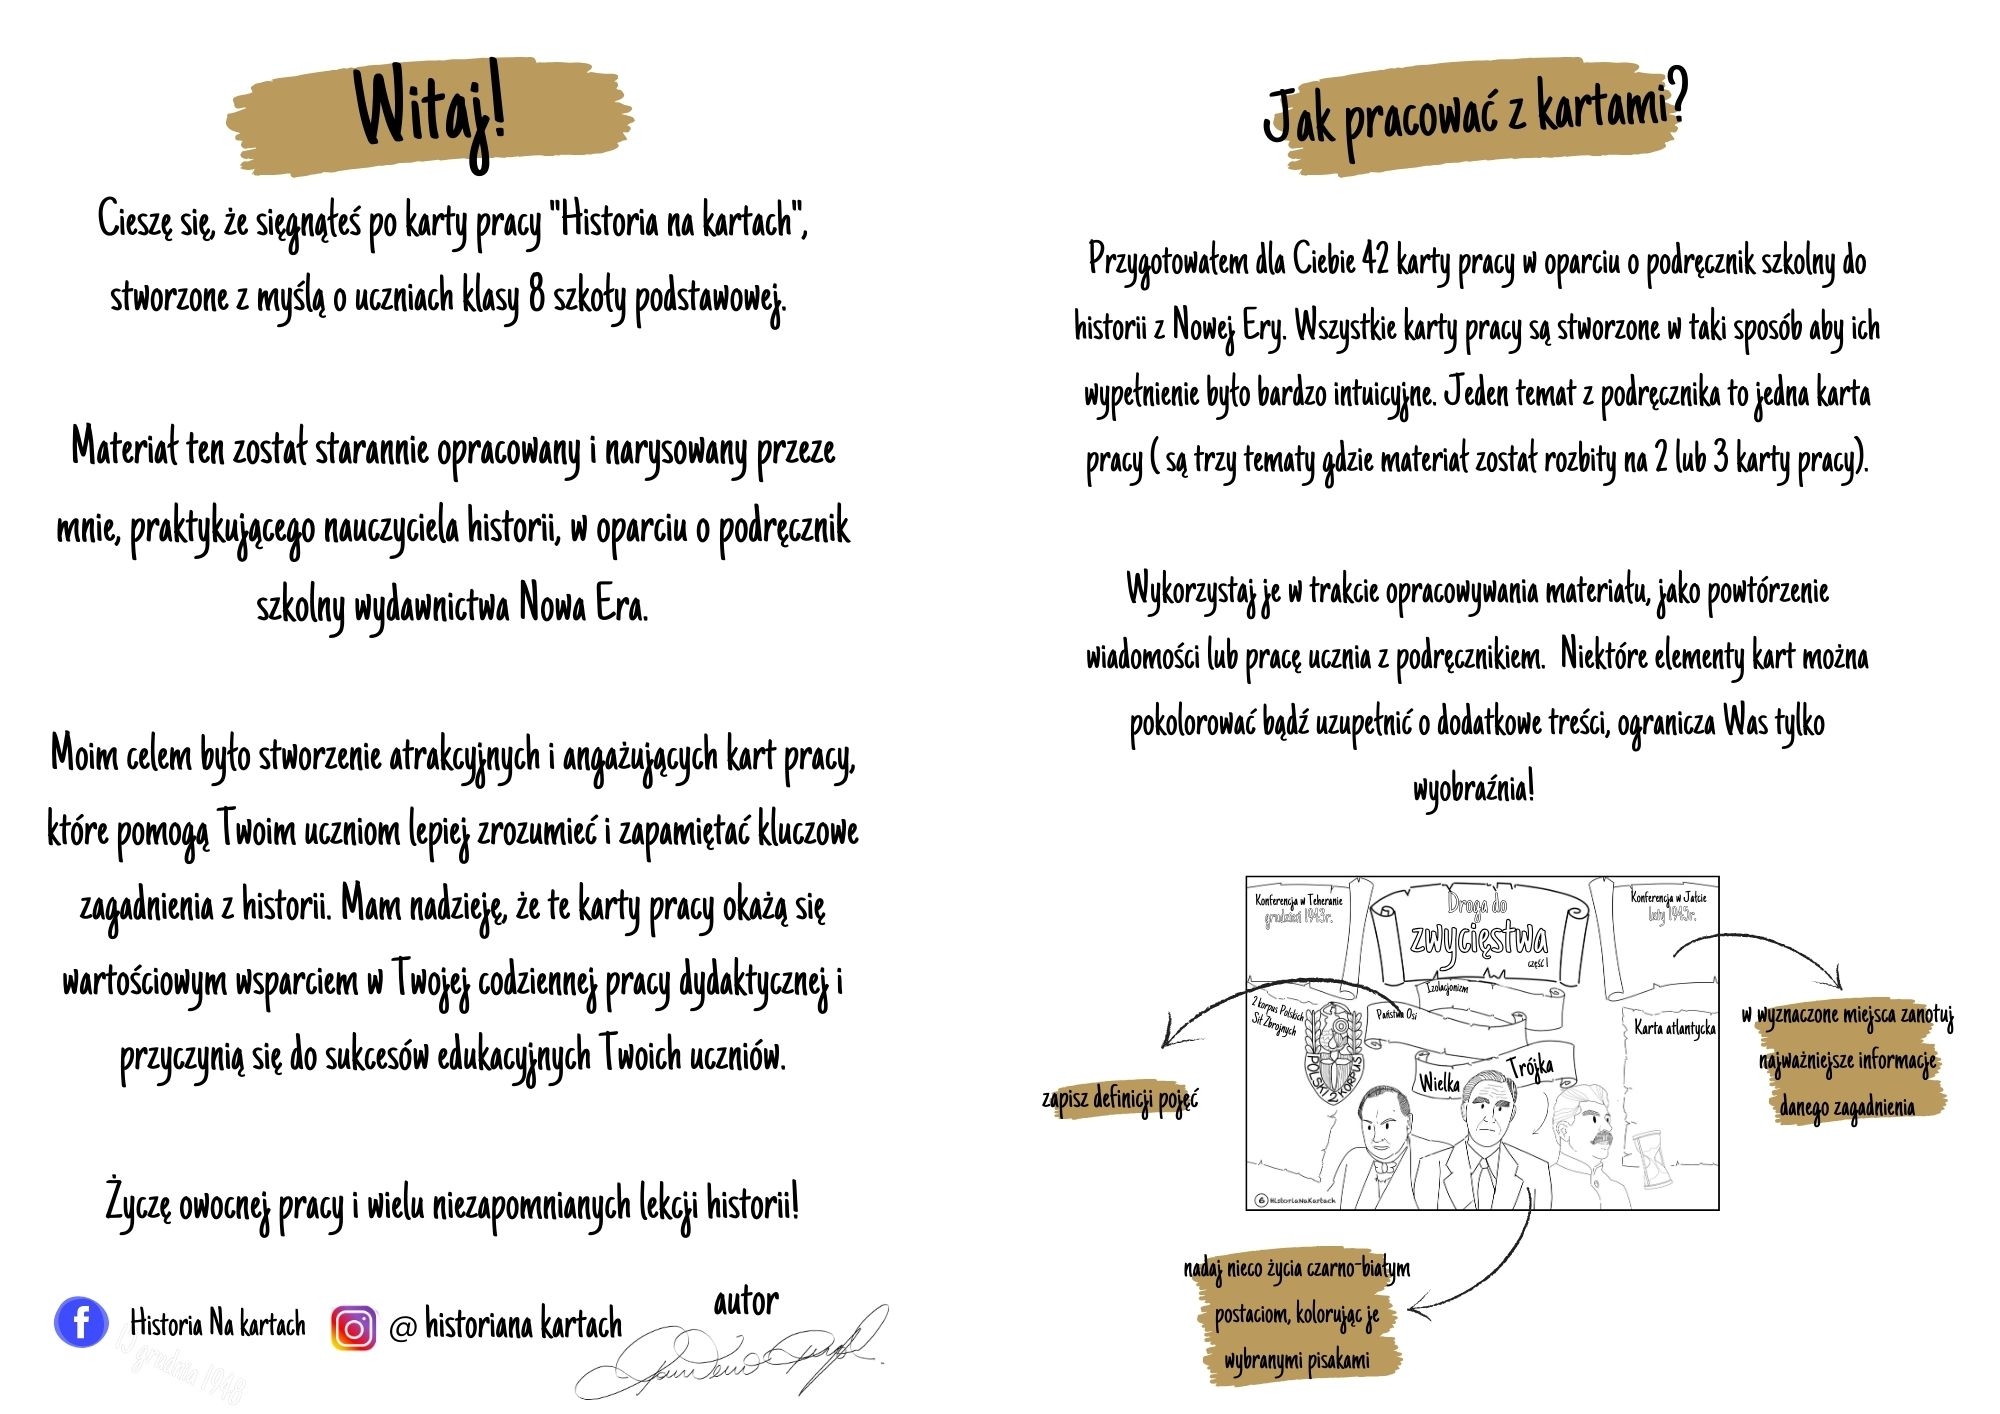 Witaj!
Cieszę się, że sięgnąłeś po karty pracy "Historia na kartach",
stworzone z myślą o uczniach klasy 8 szkoły podstawowej.
Materiał ten został starannie opracowany i narysowany przeze
mnie, praktykującego nauczyciela historii, w oparciu o podręcznik
szkolny wydawnictwa Nowa Era.
Moim celem było stworzenie atrakcyjnych i angażujących kart pracy,
które pomogą Twoim uczniom lepiej zrozumieć i zapamiętać kluczowe
zagadnienia z historii. Mam nadzieję, że te karty pracy okażą się
wartościowym wsparciem w Twojej codziennej pracy dydaktycznej i
przyczynią się do sukcesów edukacyjnych Twoich uczniów.
Życzę owocnej pracy i wielu niezapomnianych lekcji historii!
autor
Historia Na kartach
@ historiana kartach
13 grudnia 1948
Jak pracować z kartami?
Przygotowałem dla Ciebie 42 karty pracy w oparciu o podręcznik szkolny do
historii z Nowej Ery. Wszystkie karty pracy są stworzone w taki sposób aby ich
wypełnienie było bardzo intuicyjne. Jeden temat z podręcznika to jedna karta
pracy ( są trzy tematy gdzie materiał został rozbity na 2 lub 3 karty pracy).
Wykorzystaj je w trakcie opracowywania materiału, jako powtórzenie
wiadomości lub pracę ucznia z podręcznikiem. Niektóre elementy kart można
pokolorować bądź uzupełnić o dodatkowe treści, ogranicza Was tylko
wyobraźnia!
Konferencja w Teheranie
grudzień 1943r.
Droga do
zwycięstwa
część I
Konferencja w Jałcie
luty 1945r.
Izolacjonizm
Państwa Osi
2 korpus Polskich
Sił Zbrojnych
POLSKI 2 KORPUS
Karta atlantycka
Wielka
Trójka
6 HistoriaNaKartach
zapisz definicji pojęć
w wyznaczone miejsca zanotuj
najważniejsze informacje
danego zagadnienia
nadaj nieco życia czarno-białym
postaciom, kolorując je
wybranymi pisakami